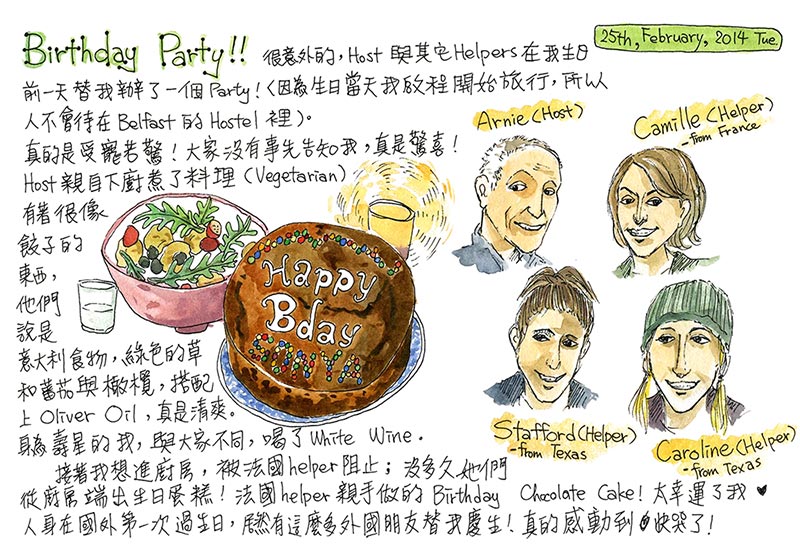 Birthday Party!! 很意外的,Host 與其它Helpers 在我生日
25th, February, 2014 Tue.
前一天替我辦了一個Party!(因為生日當天我啟程開始旅行,所以
人不會待在Belfast 的 Hostel 裡)。
真的是受寵若驚!大家沒有事先告知我,真是驚喜!
Host 親自下廚煮了料理 (Vegetarian)
有著很像
餃子的
東西,
他們
說是
意大利食物,綠色的草
和蕃茄與橄欖,搭配
上 Oliver Oil,真是清爽。
身為壽星的我,與大家不同,喝了White Wine.
接著我想進廚房,被法國helper阻止;沒多久她們
從廚房端出生日蛋糕!法國helper 親手做的 Birthday Chocolate Cake! 太幸運了我 ♥
人身在國外第一次過生日,居然有這麼多外國朋友替我慶生!真的感動到快哭了!
Happy
Bday
SONYA
Arnie (Host)
Camille (Helper)
- from France
Stafford (Helper)
- from Texas
Caroline (Helper)
- from Texas